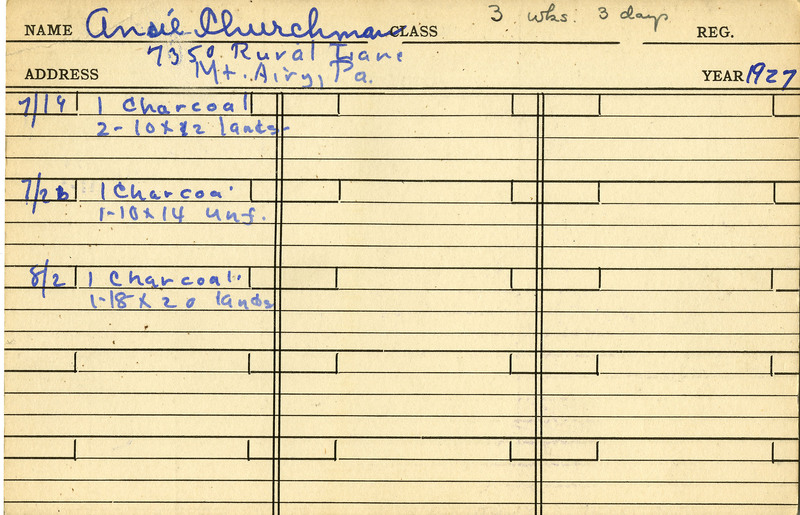 NAME Ansie Churchman CLASS 3 wks. 3 days REG.
7350 Rural Lane
ADDRESS Mt. Airy, Pa. YEAR 1927
7/19 1 Charcoal
2-10x12 lands.
7/26 1 Charcoal
1-10x14 unf.
8/2 1 Charcoal
1-18x20 lands